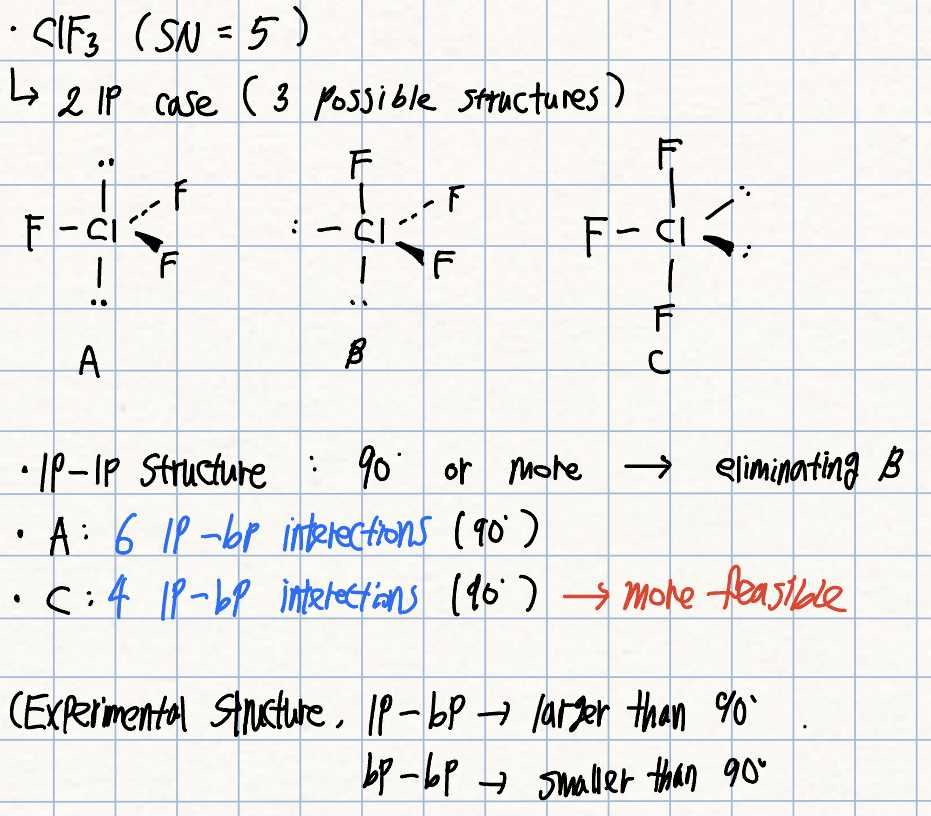 · ClF₃ (SN = 5)
↳ 2 lP case (3 possible structures)
F F F
F – Cl F : – Cl F F – Cl
F F F
A B C
· lP–lP structure : 90° or more → eliminating B
· A : 6 lP–bP interections (90°)
· C : 4 lP–bP interections (90°) → more feasible
(Experimental structure. lP–bP → larger than 90° .
bP–bP → smaller than 90°